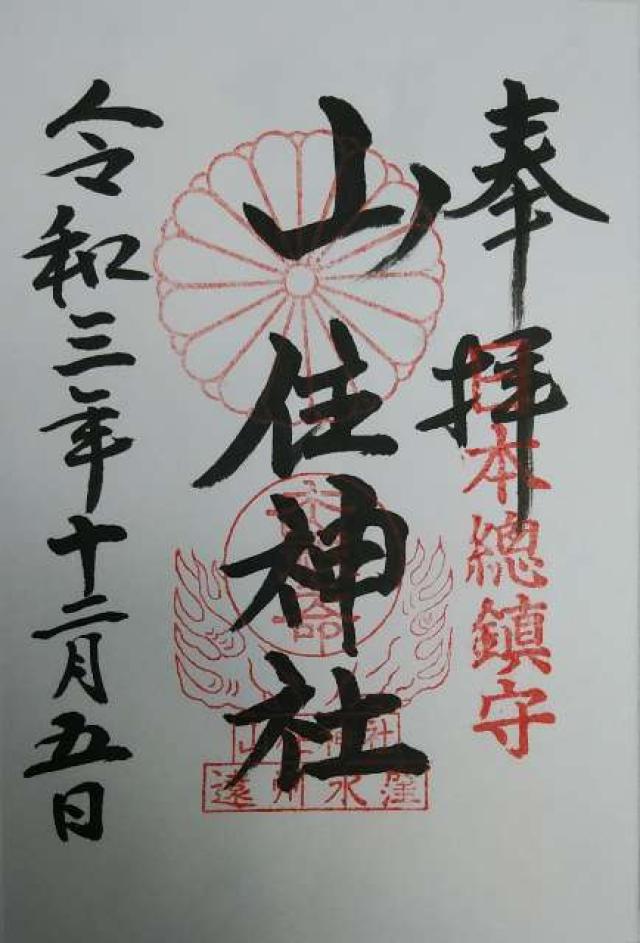 奉拝
日本總鎮守
山住神社
山住神社
遠州水窪
令和三年十二月五日